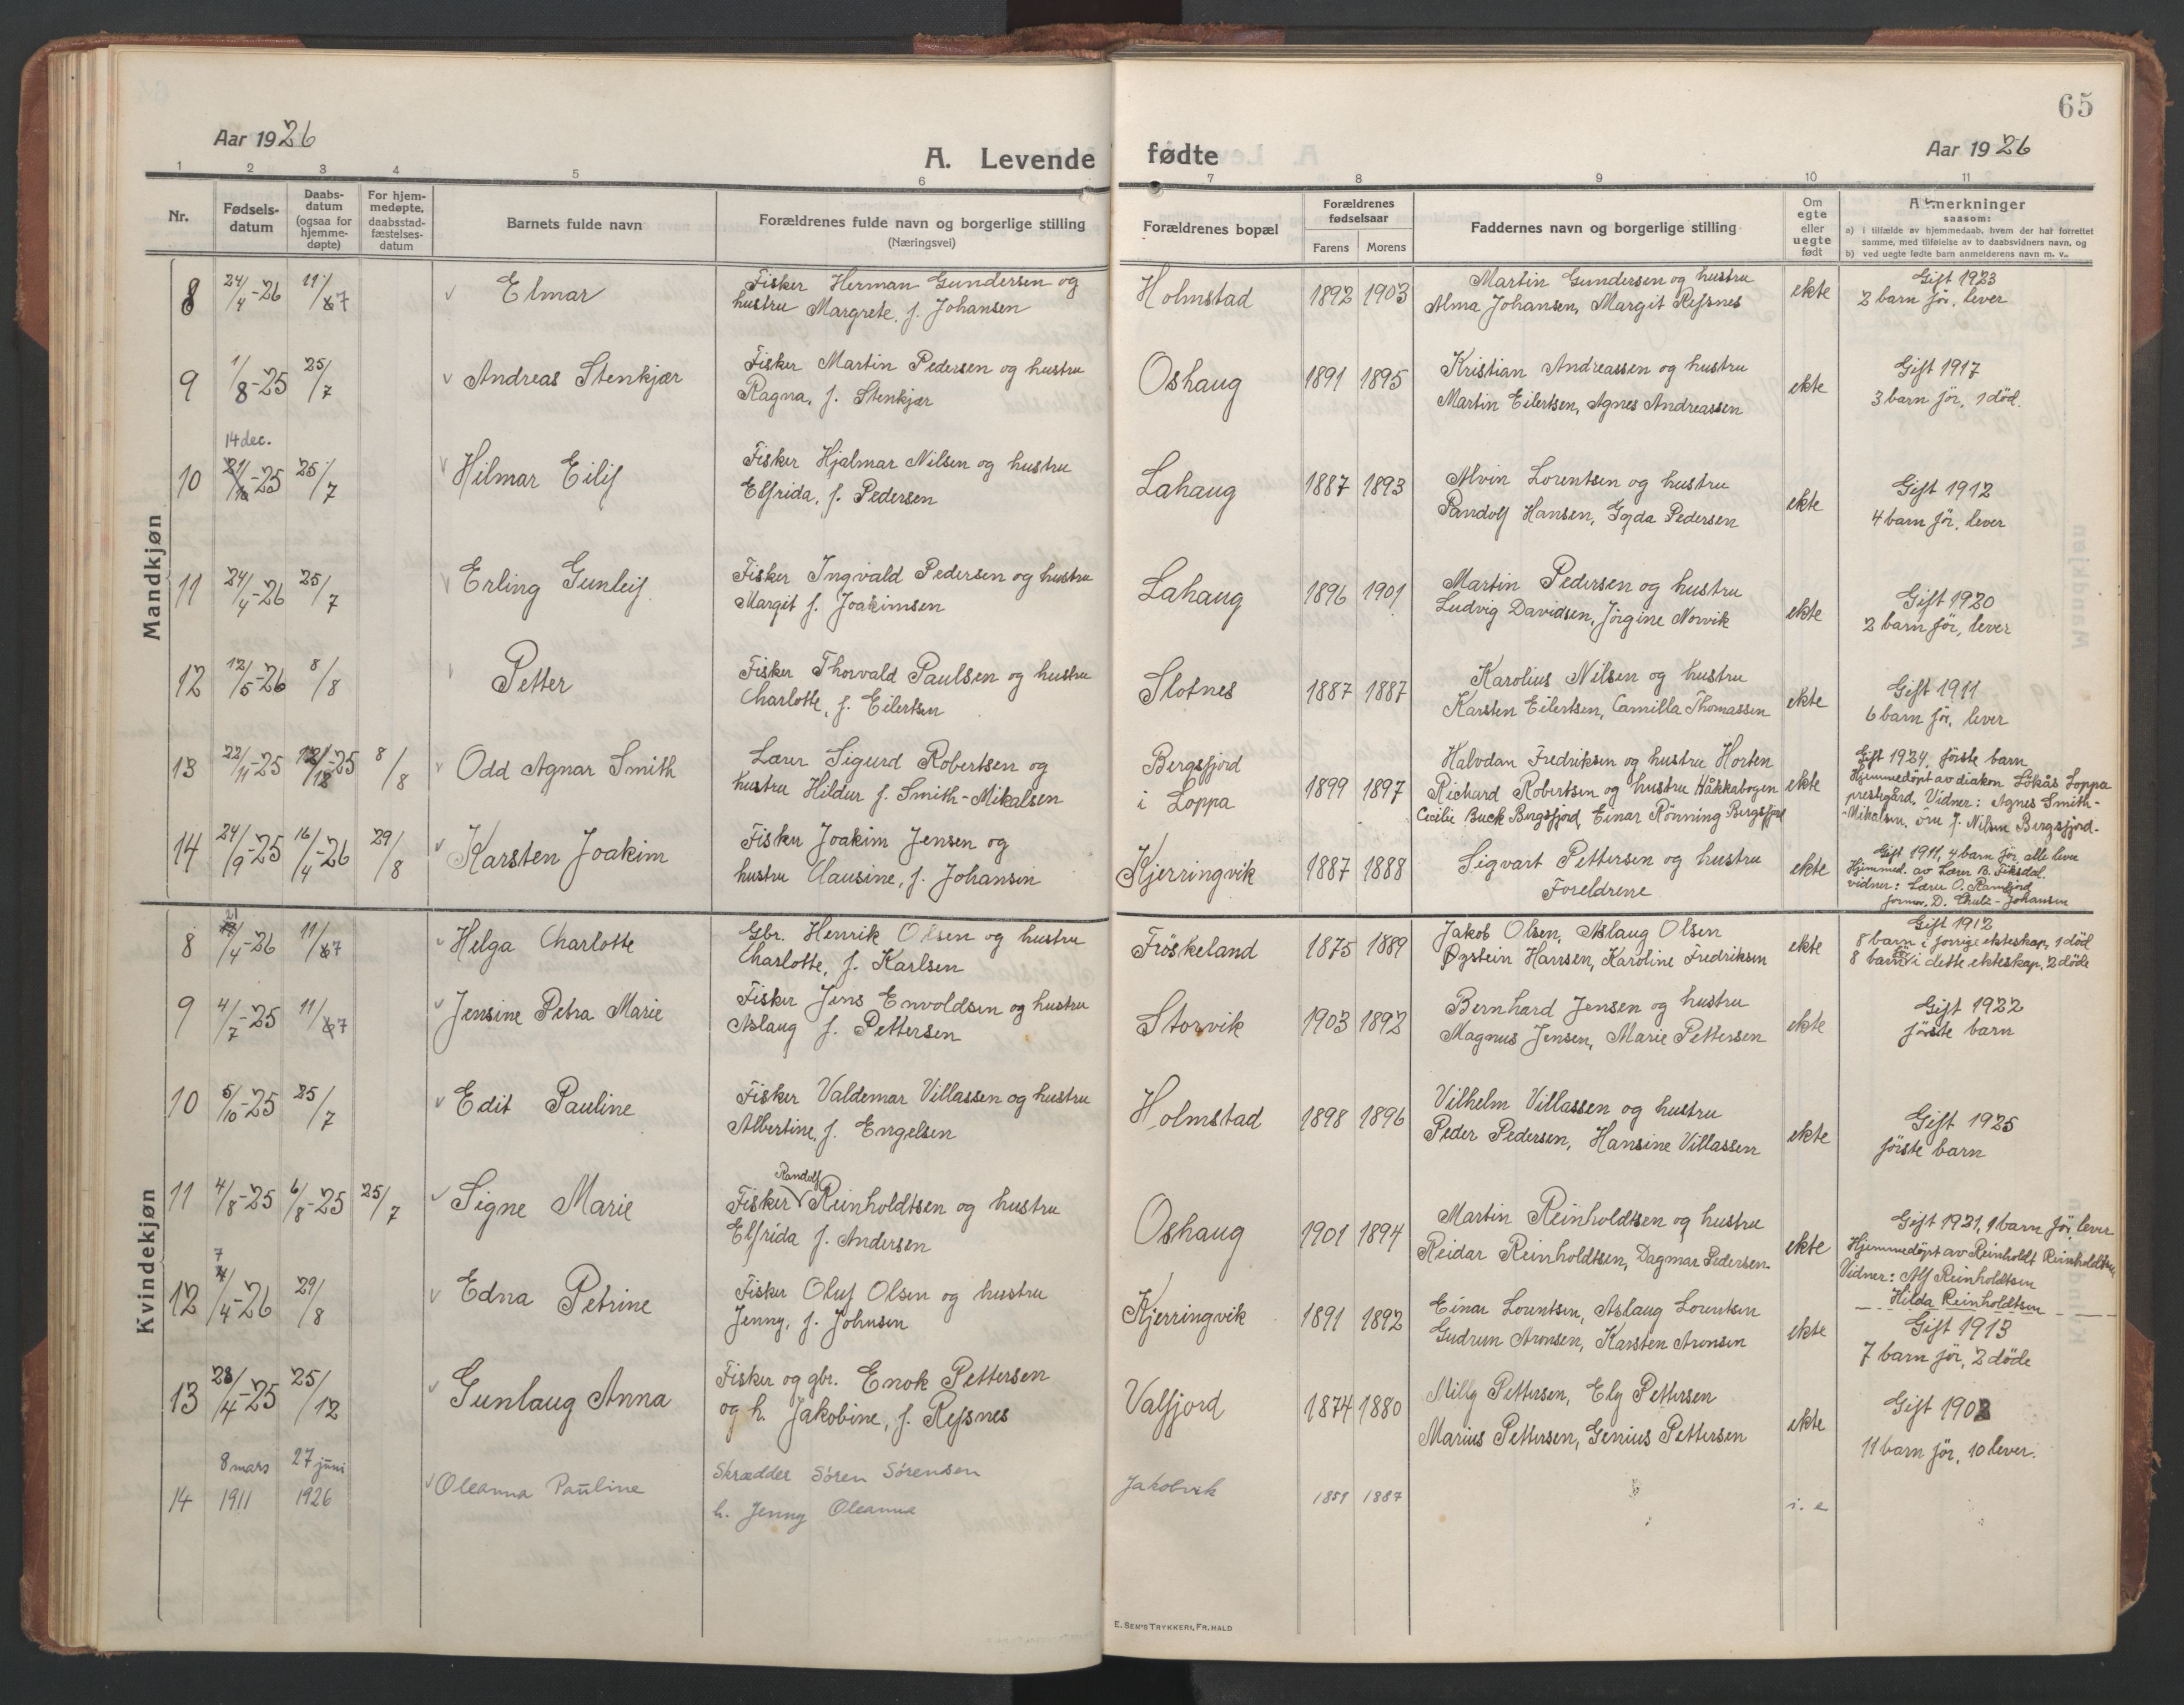 65
Aar 1926
A. Levende fødte
Aar 1926
1 2 3 4 5 6 7 8 9 10 11
Nr.
Fødsels-
datum
Daabs-
datum
(ogsaa for
hjemme-
døpte)
For hjem-
medøpte,
daabsstad-
fæstelses-
datum
Barnets fulde navn
Forældrenes fulde navn og borgerlige stilling
(Næringsvei)
Forældrenes bopæl
Forældrenes
fødselsaar
Farens Morens
Faddernes navn og borgerlige stilling
Om
egte
eller
uegte
født
Anmerkninger
saasom:
a) i tilfælde av hjemmedaab, hvem der har forrettet
samme, med tilføielse av to daabsvidners navn, og
b) ved uegte fødte barn anmelderens navn m. v.
Mandkjøn
8 24/4-26 11/7 Elmar
Fisker Herman Gundersen og
hustru Margrete, f. Johansen
Holmstad 1892 1903
Martin Gundersen og hustru
Alma Johansen, Margit Refsnes
ekte
Gift 1923
2 barn før, lever
9 1/8-25 25/7 Andreas Stenkjær
Fisker Martin Pedersen og hustru
Ragna, f. Stenkjær
Oshaug 1891 1895
Kristian Andreassen og hustru
Martin Eilertsen, Agnes Andreassen
ekte
Gift 1917
3 barn før, 1 død.
14 dec.
10 21/10-25 25/7 Hilmar Eilif
Fisker Hjalmar Nilsen og hustru
Elfrida, f. Pedersen
Lahaug 1887 1893
Alvin Lorentsen og hustru
Randolf Hansen, Gyda Pedersen
ekte
Gift 1912
4 barn før, lever
11 24/4-26 25/7 Erling Gunleif
Fisker Ingvald Pedersen og hustru
Margit f. Joakimsen
Lahaug 1896 1901
Martin Pedersen og hustru
Ludvig Davidsen, Jørgine Norvik
ekte
Gift 1920
2 barn før, lever
12 12/5-26 8/8 Petter
Fisker Thorvald Paulsen og hustru
Charlotte, f. Eilertsen
Slotnes 1887 1887
Karolius Nilsen og hustru
Karsten Eilertsen, Camilla Thomassen
ekte
Gift 1911
6 barn før, lever
13 22/11-25 12/12-25 8/8 Odd Agnar Smith
Lærer Sigurd Robertsen og
hustru Hildur f. Smith-Mikalsen
Bergsfjord
i Loppa
1899 1897
Halvdan Fredriksen og hustru Horten
Richard Robertsen og hustru Håkkabogen
Cecilie Buck Bergsfjord, Einar Rönning Bergsfjord
ekte
Gift 1924, første barn
Hjemmedöpt av diakon Lökås Loppa
prestegård. Vidner: Agnes Smith-
-Mikalsen, fru J. Nilsen Bergsfjord-
14 24/9-25 16/4-26 29/8 Karsten Joakim
Fisker Joakim Jensen og
hustru Clausine, f. Johansen
Kjerringvik 1887 1888
Sigvart Pettersen og hustru
Foreldrene
ekte
Gift 1911, 4 barn før, alle lever
Hjemmed. av Lærer B. Fiksdal.
vidner: Lærer O. Ramfjord
jormor. D. Chulz-Johansen
Kvindekjøn
8 21/4-26 11/7 Helga Charlotte
Gbr. Henrik Olsen og hustru
Charlotte, f. Karlsen
Fröskeland 1875 1889
Jakob Olsen, Aslaug Olsen
Øystein Hansen, Karoline Fredriksen
ekte
Gift 1912
8 barn i forrige ekteskap, 1 död
8 barn för i dette ekteskap, 2 döde
9 4/7-25 11/7 Jensine Petra Marie
Fisker Jens Envoldsen og hustru
Aslaug f. Pettersen
Storvik 1903 1892
Bernhard Jensen og hustru
Magnus Jensen, Marie Pettersen
ekte
Gift 1922
første barn
10 5/10-25 25/7 Edit Pauline
Fisker Valdemar Villassen og hustru
Albertine, f. Engelsen
Holmstad 1898 1896
Vilhelm Villassen og hustru
Peder Pedersen, Hansine Villassen
ekte
Gift 1925
förste barn
11 4/8-25 6/8-25 25/7 Signe Marie
Randolf
Fisker Reinholdtsen og hustru
Elfrida f. Andersen
Oshaug 1901 1894
Martin Reinholdtsen og hustru
Reidar Reinholdtsen, Dagmar Pedersen
ekte
Gift 1921, 1 barn før, lever
Hjemmedöpt av Reinholdt Reinholdtsen
Vidner: Alf Reinholdtsen
Hilda Reinholdtsen
12 7/4-26 29/8 Edna Petrine
Fisker Oluf Olsen og hustru
Jenny, f. Johnsen
Kjerringvik 1891 1892
Einar Lorentsen, Aslaug Lorentsen
Gudrun Aronsen, Karsten Aronsen
ekte
Gift 1913
7 barn før, 2 döde
13 28/4-25 25/12 Gunlaug Anna
Fisker og gbr. Enok Pettersen
og h. Jakobine, f. Refsnes
Valfjord 1874 1880
Milly Pettersen, Ely Pettersen
Marius Pettersen, Genius Pettersen
ekte
Gift 1902
11 barn før, 10 lever.
8 mars 27 juni
14 1911 1926 Oleanna Pauline
Skrædder Sören Sörensen
h. Jenny Oleanna
Jakobvik 1851 1887
i. e
E. SEM'S TRYKKERI, FR.HALD